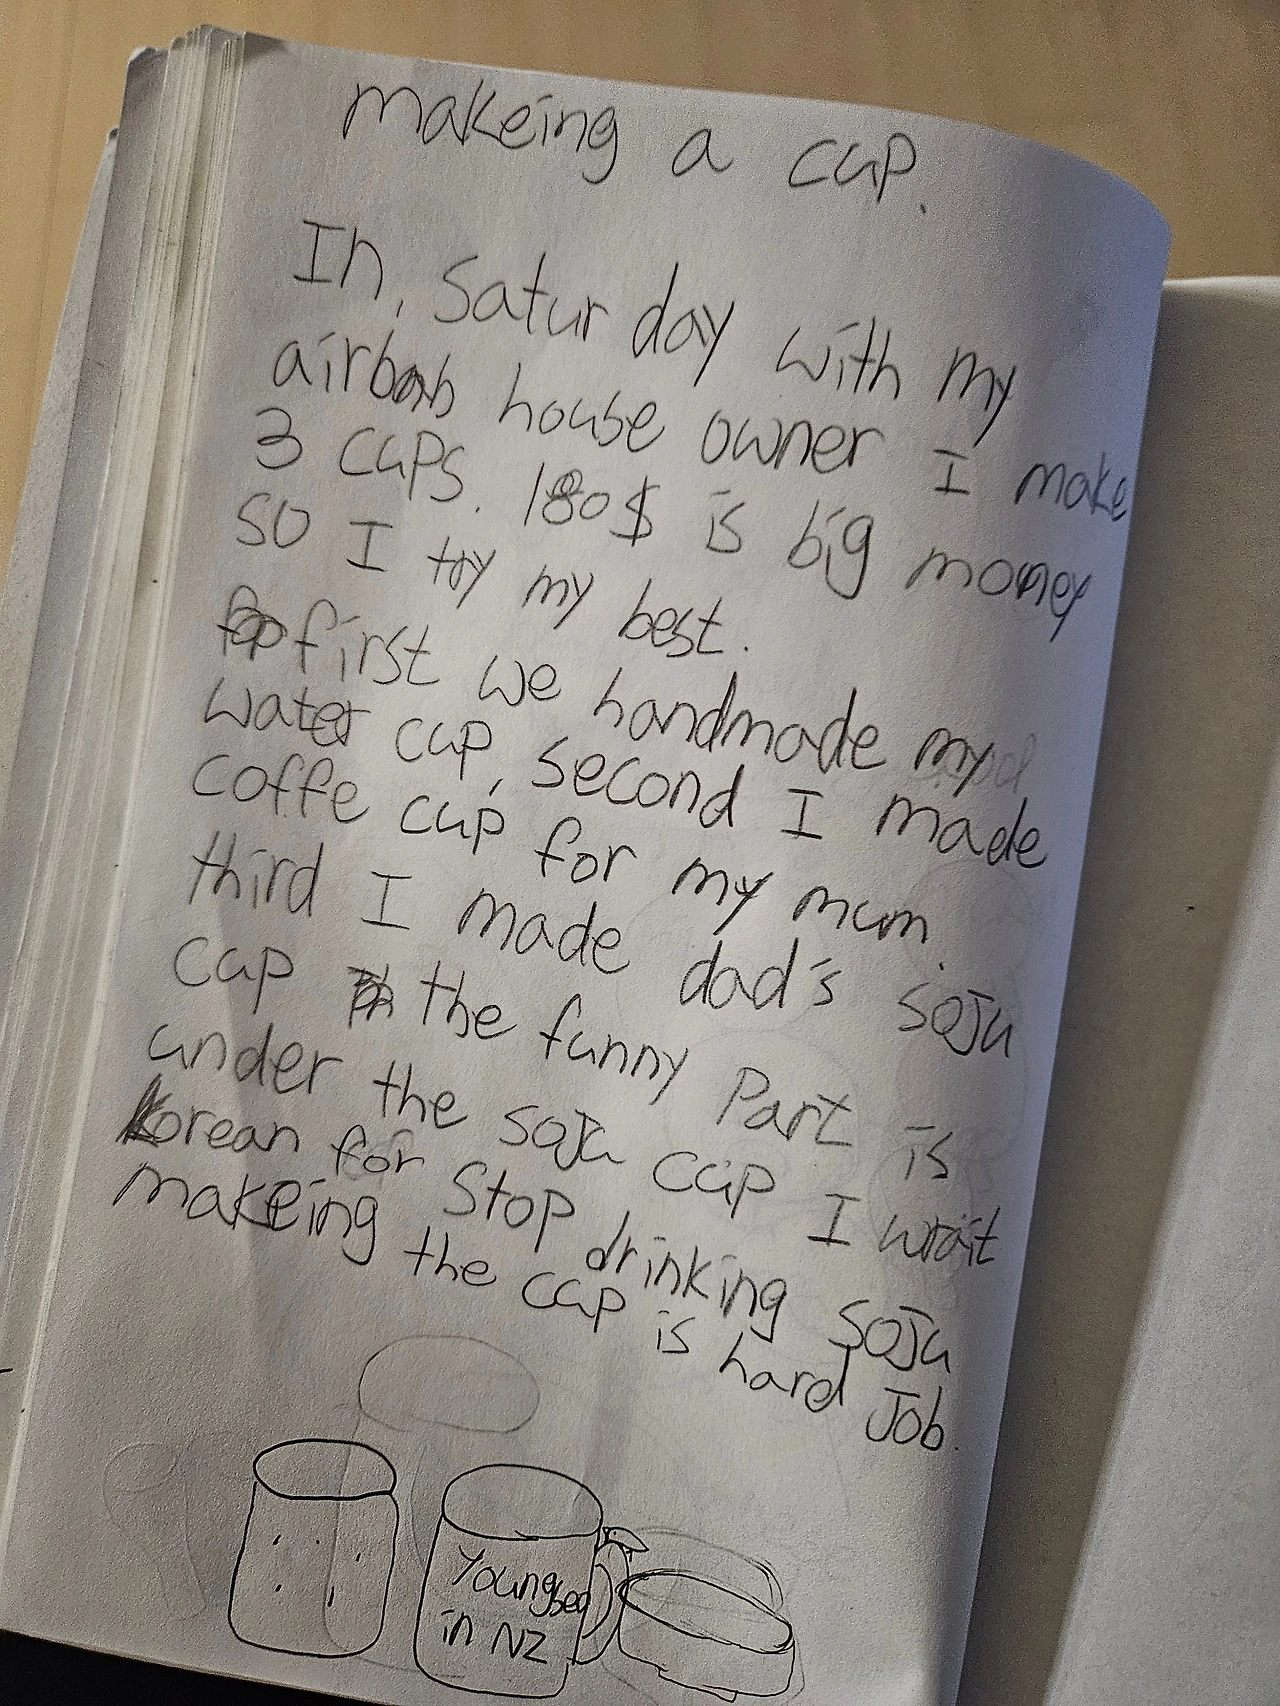 makeing a cup.
In, Saturday with my
airbnb house owner I make
3 cups. 180$ is big money
so I try my best.
first we handmade my
water cup, second I made
coffe cup for my mum.
third I made dad's soju
cup the funny Part is
under the soju cup I wrait
korean for Stop drinking soju
makeing the cup is hard Job.
in NZ